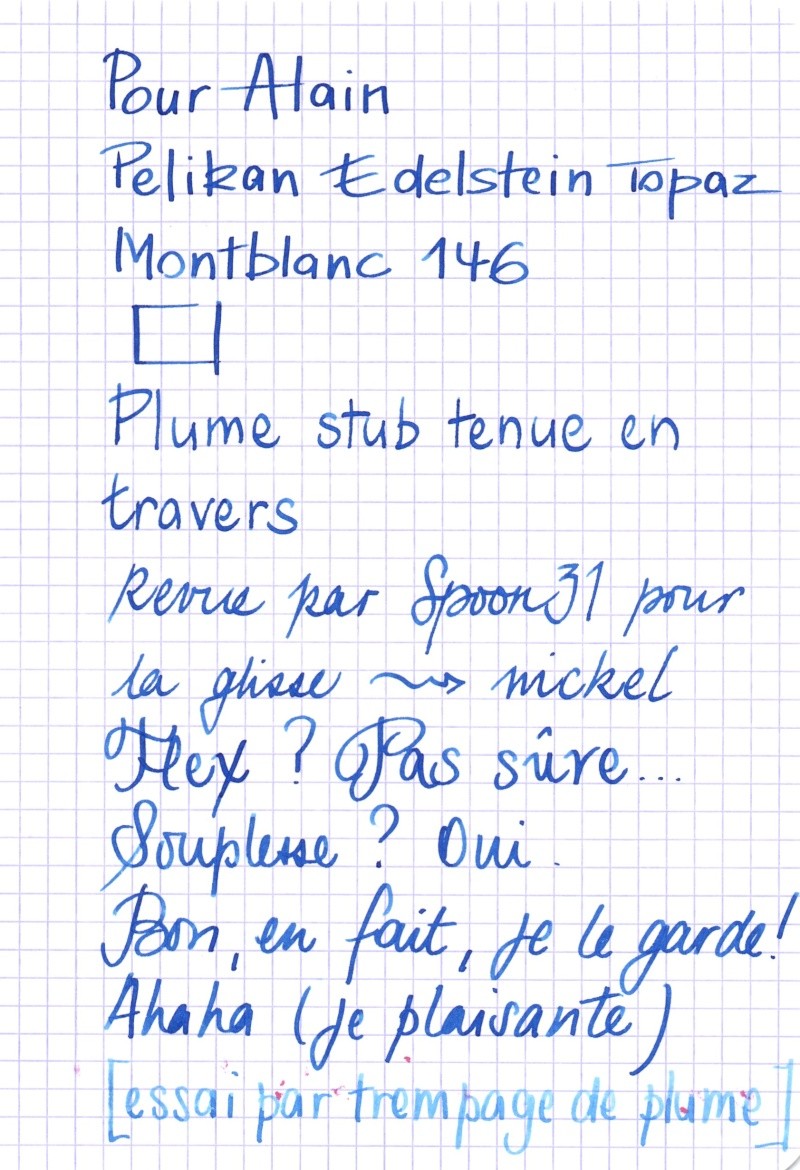 Pour Alain
Pelikan Edelstein Topaz
Montblanc 146
Plume stub tenue en
travers
Revue par Spoon31 pour
la glisse ⟿ nickel
Flex ? Pas sûre...
Souplesse ? Oui.
Bon, en fait, je le garde!
Ahaha (je plaisante)
[essai par trempage de plume]